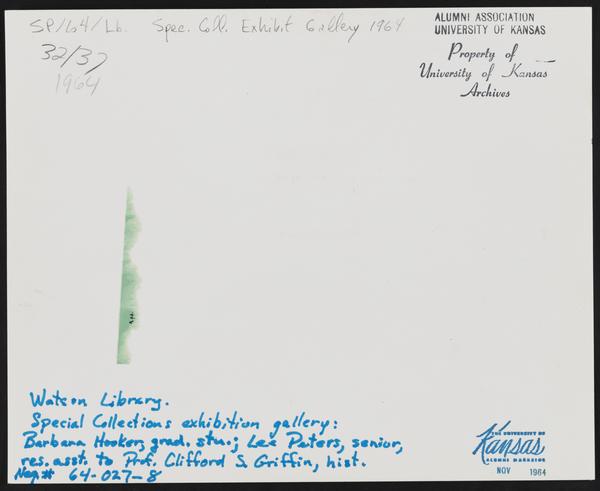 SP/64/Lb. Spec. Coll. Exhibit Gallery 1964
32/37
1964
ALUMNI ASSOCIATION
UNIVERSITY OF KANSAS
Property of
University of Kansas
Archives
Watson Library.
Special Collections exhibition gallery:
Barbara Hooker, grad. stu.; Lee Peters, senior,
res. asst. to Prof. Clifford S. Griffin, hist.
Neg.# 64-027-8
THE UNIVERSITY OF
Kansas
ALUMNI MAGAZINE
NOV 1964